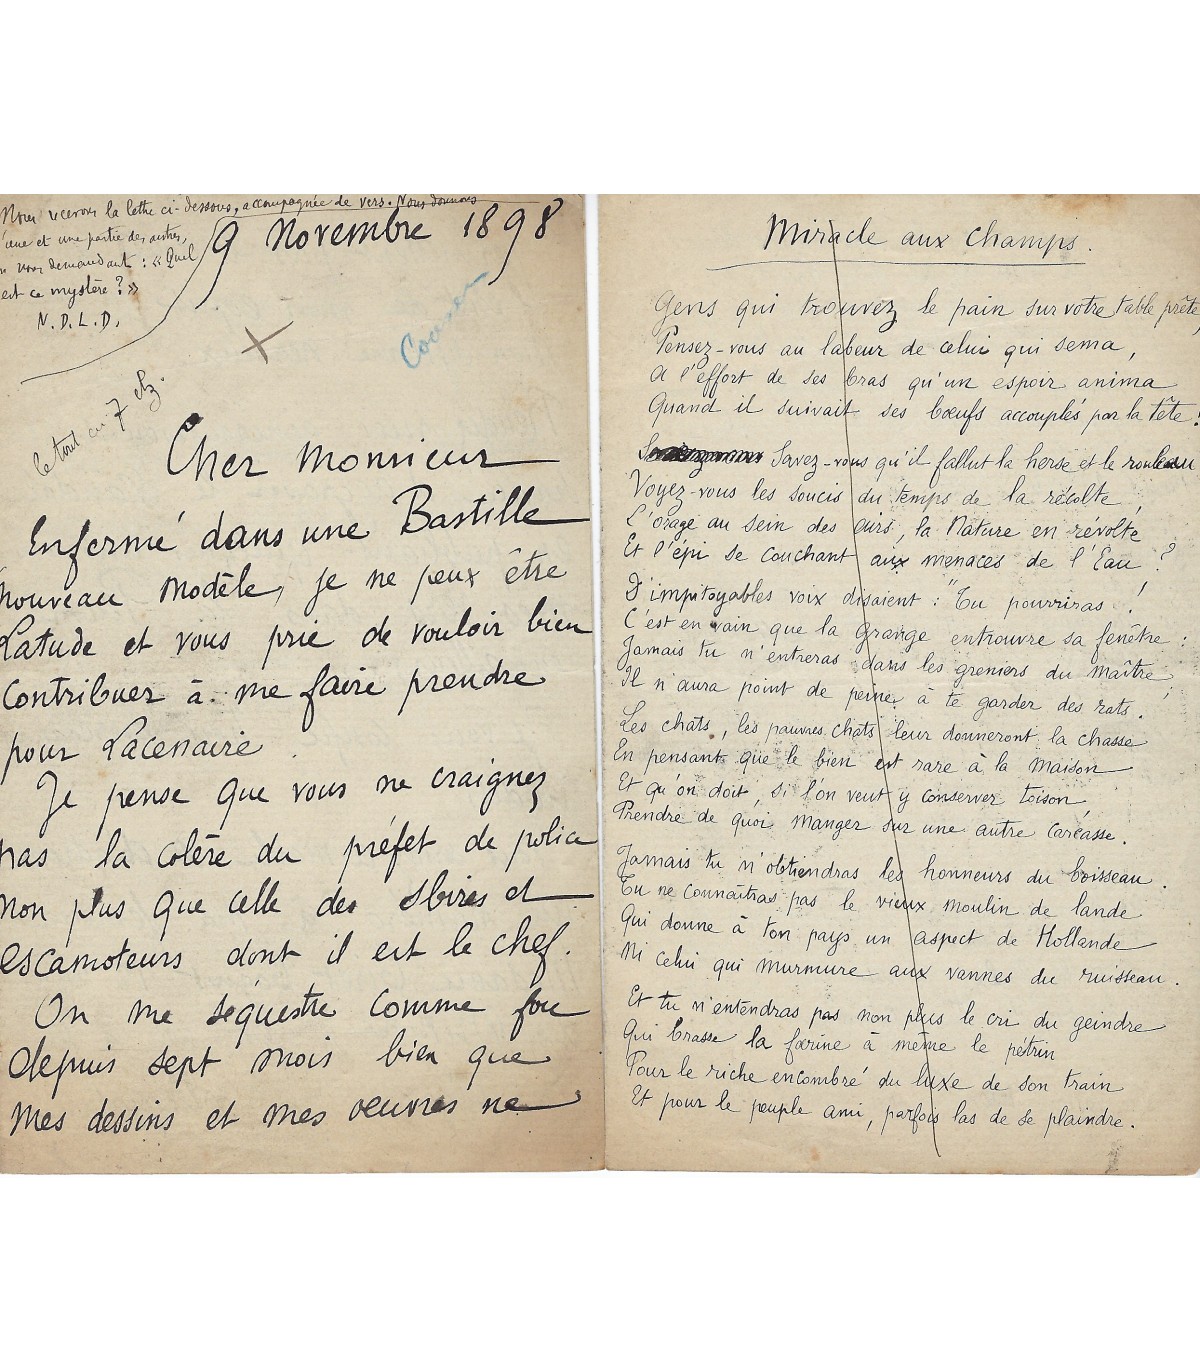 Nous recevons la lettre ci-dessous, accompagnée de vers. Nous donnons
l'une et une partie des autres,
en vous demandant : « Quel
est ce mystère ? »
N.D.L.D.
9 Novembre 1898
le tout en 7
Cher Monsieur
Enfermé dans une Bastille
nouveau modèle, je ne peux être
Latude et vous prie de vouloir bien
contribuer à me faire prendre
pour Lacenaire.
Je pense que vous ne craignez
pas la colère du préfet de police
non plus que celle des sbires et
escamoteurs dont il est le chef.
On me séquestre comme fou
depuis sept mois bien que
mes dessins et mes oeuvres ne
Miracle aux champs.
Gens qui trouvez le pain sur votre table prête,
Pensez-vous au labeur de celui qui sema,
A l'effort de ses bras qu'un espoir anima
Quand il suivait ses bœufs accouplés par la tête !
Savez-vous qu'il fallut la herse et le rouleau
Voyez-vous les soucis du temps de la récolte,
L'orage au sein des airs, la Nature en révolte
Et l'épi se couchant aux menaces de l'Eau ?
D'impitoyables voix disaient : "Tu pourriras !
C'est en vain que la grange entrouvre sa fenêtre :
Jamais tu n'entreras dans les greniers du maître,
Il n'aura point de peine à te garder des rats.
Les chats, les pauvres chats leur donneront la chasse
En pensant que le bien est rare à la maison
Et qu'on doit, si l'on veut y conserver toison,
Prendre de quoi manger sur une autre carcasse.
Jamais tu n'obtiendras les honneurs du boisseau.
Tu ne connaîtras pas le vieux moulin de lande
Qui donne à ton pays un aspect de Hollande
Ni celui qui murmure aux vannes du ruisseau.
Et tu n'entendras pas non plus le cri du geindre
Qui brasse la farine à même le pétrin
Pour le riche encombré du luxe de son train
Et pour le peuple ami, parfois las de se plaindre.